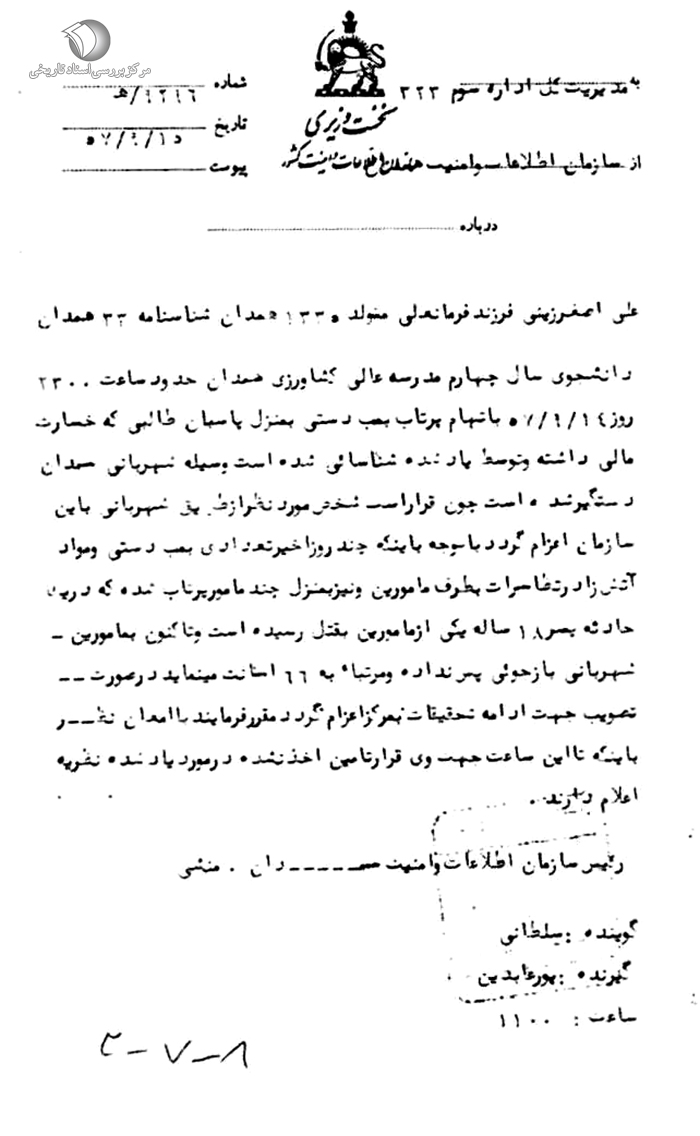 مرکز بررسی اسناد تاریخی
به مدیریت کل اداره سوم ۳۲۳
نخست وزیری
سازمان اطلاعات و امنیت کشور
از سازمان اطلاعات وامنیت همدان
شماره ۴۲۹۶/هـ
تاریخ
پیوست
درباره
علی اصغر زینی فرزند فرمانعلی متولد ۱۳۳۰ همدان شناسنامه ۳۳ همدان
دانشجوی سال چهارم مدرسه عالی کشاورزی همدان حدود ساعت ۲۳۰۰
روز ۵۷/۹/۱۴ باتهام پرتاب بمب دستی بمنزل پاسبان طالبی که خسارت
مالی داشته وتوسط یاد شده شناسائی شده است وسیله شهربانی همدان
دستگیر شده است چون قراراست شخص مورد نظر از طریق شهربانی باین
سازمان اعزام گردد باتوجه باینکه چند روز اخیر تعدادی بمب دستی ومواد
آتش زا در تظاهرات بطرف مامورین ونیز بمنزل چند مامور پرتاب شده که در یک
حادثه پسر ۱۸ ساله یکی از مامورین بقتل رسیده است وتاکنون بمامورین -
شهربانی بازجوئی پس نداده ومرتبا به ۶۶ اهانت مینماید در صورت --
تصویب جهت ادامه تحقیقات بمرکز اعزام گردد مقرر فرمایند با امعان نظــر
باینکه تا این ساعت جهت وی قرار تامین اخذ نشده در مورد یاد شده نظریه
اعلام دارند .
رئیس سازمان اطلاعات وامنیت همـــدان . منشی
گوینده : سلطانی
گیرنده : پورعابدین
ساعت : ۱۱۰۰
۲-۷-۸